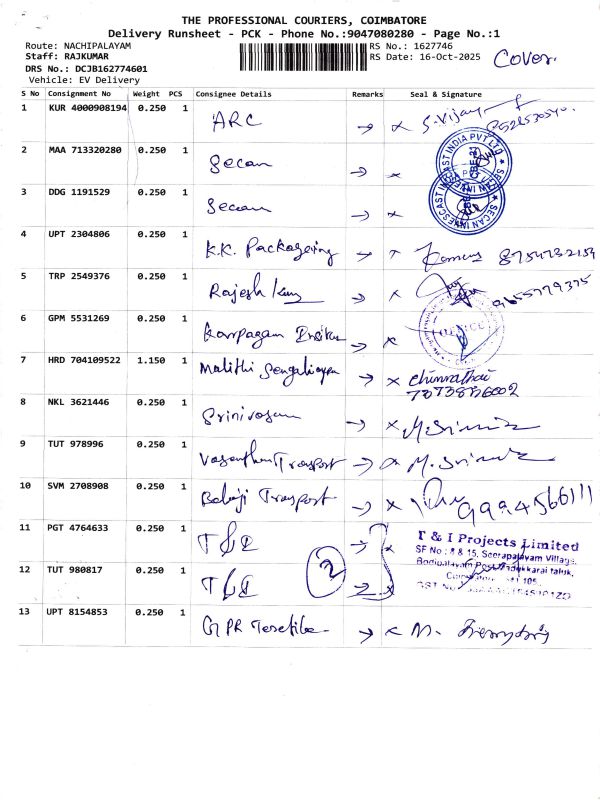 THE PROFESSIONAL COURIERS, COIMBATORE
Delivery Runsheet - PCK - Phone No.:9047080280 - Page No.:1
Route: NACHIPALAYAM
RS No.: 1627746
Staff: RAJKUMAR
RS Date: 16-Oct-2025
Cover.
DRS No.: DCJB162774601
Vehicle: EV Delivery
S No Consignment No Weight PCS Consignee Details Remarks Seal & Signature
1 KUR 4000908194 0.250 1 ARC → x S. Vijay
2 MAA 713320280 0.250 1 Secan → x
SECAN INVESCAST INDIA PVT LTD
3 DDG 1191529 0.250 1 Secan → x
SECAN INVESCAST INDIA PVT LTD
4 UPT 2304806 0.250 1 K.K. Packagering →
5 TRP 2549376 0.250 1 Rajesh → x 9655779375
6 GPM 5531269 0.250 1 Karpagam → x
OFFICE
7 HRD 704109522 1.150 1 Malithi → x
8 NKL 3621446 0.250 1 Srinivasan → x
9 TUT 978996 0.250 1 Vasantham Transport → x
10 SVM 2708908 0.250 1 Balaji Transport → x 9994566111
11 PGT 4764633 0.250 1 T & I → x
T & I Projects Limited
SF No : 8 & 15, Seerapalayam Village,
12 TUT 980817 0.250 1 T & I 2
13 UPT 8154853 0.250 1 GPR Textile → x M.